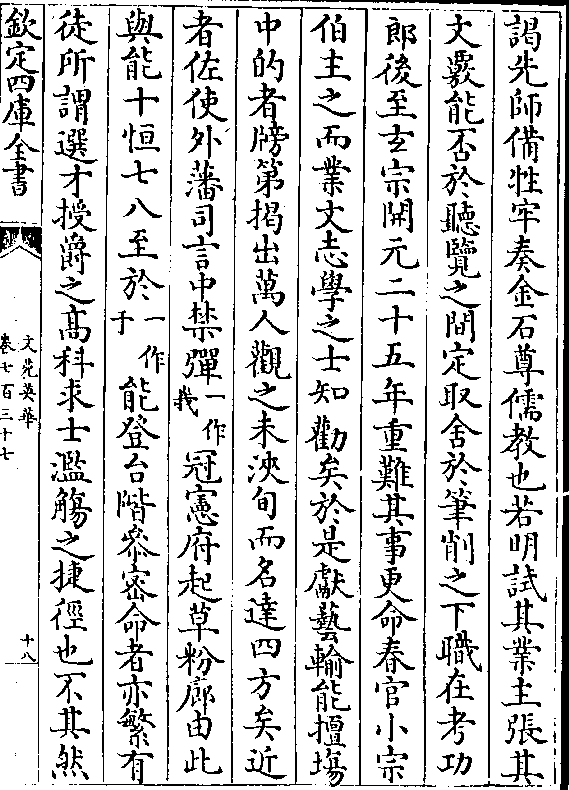 謁先師備牲牢奏金石尊儒教也若明試其業主張其
文覈能否於聽覽之間定取舍於筆削之下職在考功
郎後至玄宗開元二十五年重難其事更命春官小宗
伯主之而業文志學之士知勸矣於是獻藝輸能擅場
中的者牓第揭出萬人觀之未浹旬而名達四方矣近
者佐使外藩司言中禁彈一作峩冠憲府起草粉廊由此
與能十恒七八至於一作于能登台階叅密命者亦繁有
徒所謂選才授爵之髙科求士濫觴之捷徑也不其然
欽定四庫全書
文苑英華
卷七百三十七
十八